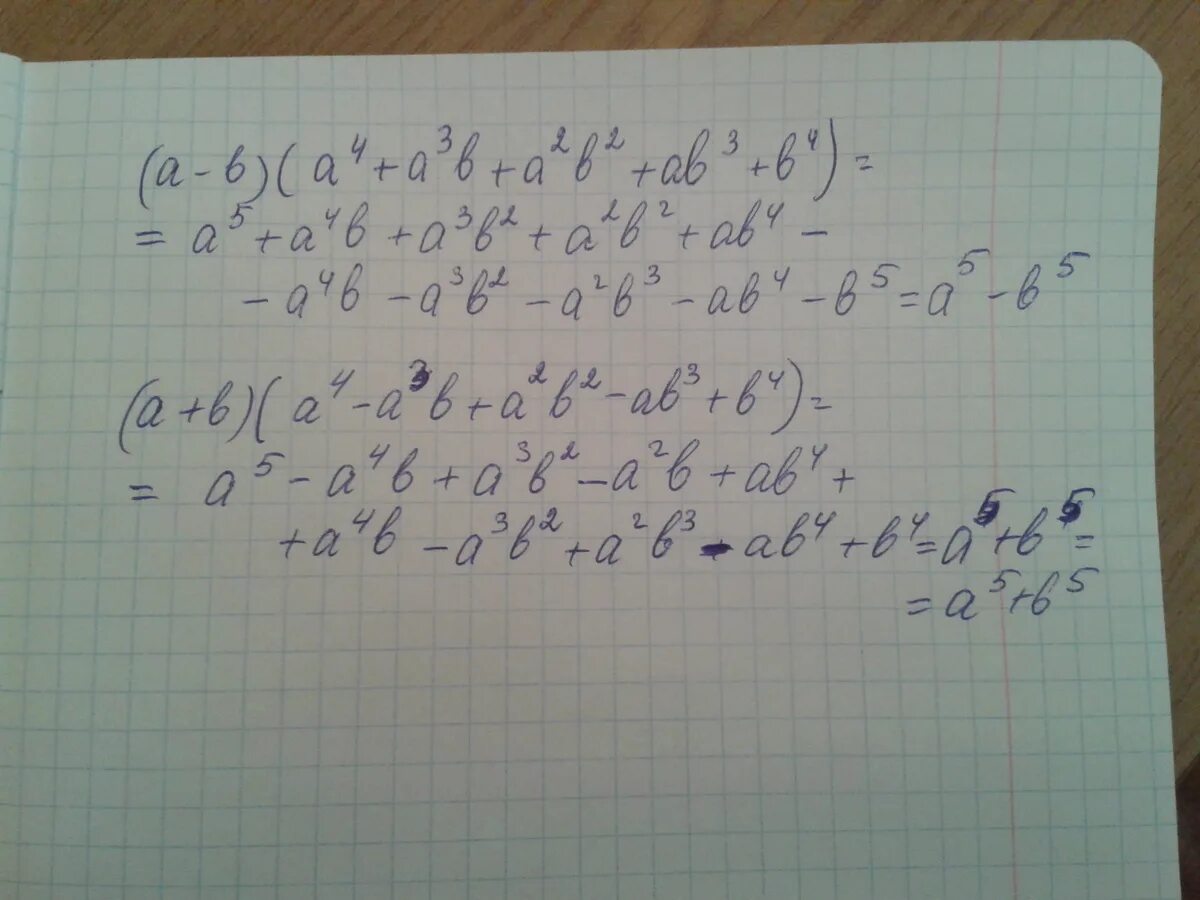 (a-b)(a⁴+a³b+a²b²+ab³+b⁴)=
= a⁵+a⁴b+a³b²+a²b²+ab⁴-
-a⁴b-a³b²-a²b³-ab⁴-b⁵=a⁵-b⁵
(a+b)(a⁴-a³b+a²b²-ab³+b⁴)=
= a⁵-a⁴b+a³b²-a²b+ab⁴+
+a⁴b-a³b²+a²b³-ab⁴+b⁴=a⁵+b⁵=
=a⁵+b⁵